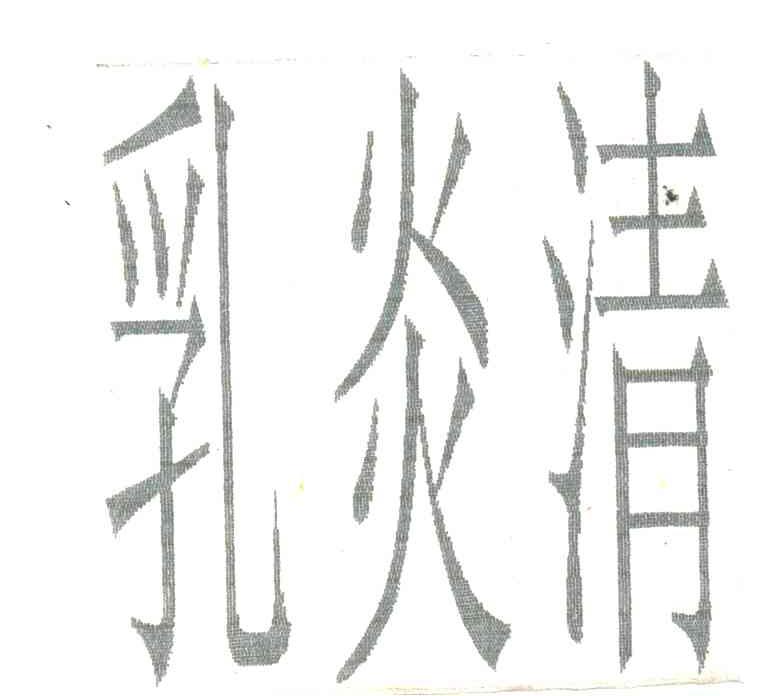 乳炎清